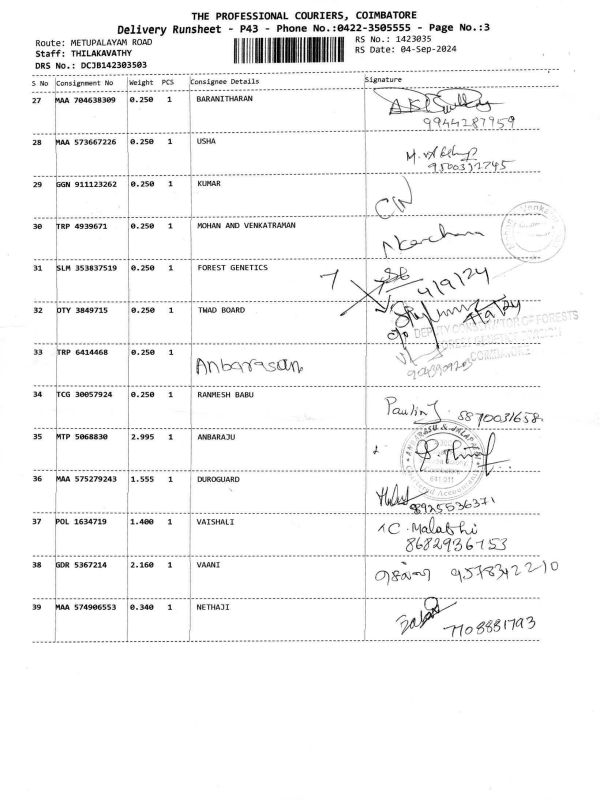 THE PROFESSIONAL COURIERS, COIMBATORE
Delivery Runsheet - P43 - Phone No.:0422-3505555 - Page No.:3
Route: METUPALAYAM ROAD RS No.: 1423035
Staff: THILAKAVATHY RS Date: 04-Sep-2024
DRS No.: DCJB142303503
S No Consignment No Weight PCS Consignee Details Signature
27 MAA 704638309 0.250 1 BARANITHARAN
9944287959
28 MAA 573667226 0.250 1 USHA
9500332745
29 GGN 911123262 0.250 1 KUMAR
30 TRP 4939671 0.250 1 MOHAN AND VENKATRAMAN
31 SLM 353837519 0.250 1 FOREST GENETICS
7 4/9/24
32 OTY 3849715 0.250 1 TWAD BOARD
DEPUTY CONSERVATOR OF FORESTS
COIMBATORE
33 TRP 6414468 0.250 1 Anbarasan
34 TCG 30057924 0.250 1 RANMESH BABU
Paulin J 5870031658
35 MTP 5068830 2.995 1 ANBARAJU
36 MAA 575279243 1.555 1 DUROGUARD
8925536371
37 POL 1634719 1.400 1 VAISHALI C. Malathi
8682936753
38 GDR 5367214 2.160 1 VAANI 9578342210
39 MAA 574906553 0.340 1 NETHAJI
7708881793